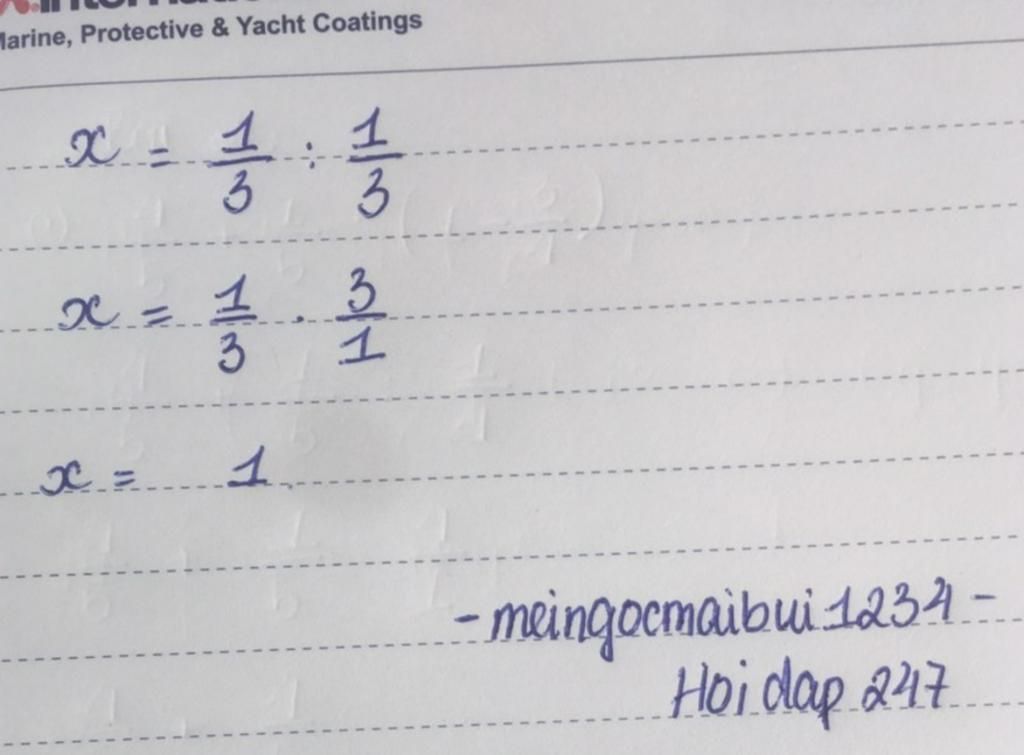 Marine, Protective & Yacht Coatings
x = 1/3 : 1/3
x = 1/3 . 3/1
x = 1
- meingocmaibui 1234 -
Hoidap 247